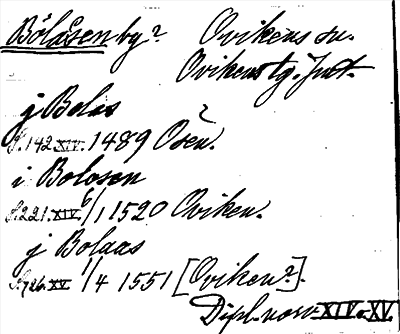 Bölåsen by? Ovikens sn.
Ovikens tg. Jmt.
j Bolas
S. 142 XIV. 1489 Osen.?
i Bolosen
S. 221. XIV. 6/1 1520 Oviken.
j Bolaas
S. 726. XV. 1/4 1551 [Oviken?].
Dipl. norv. XIV o. XV.